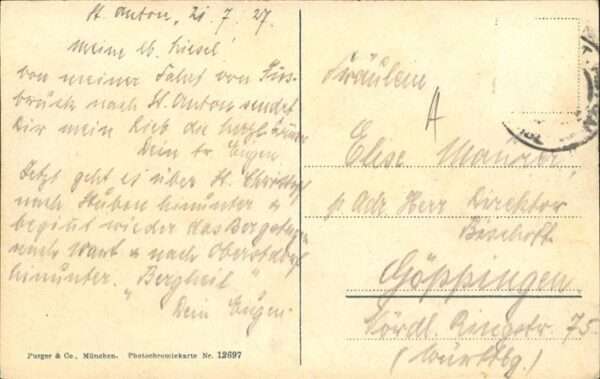 St. Anton, 21.7.27.
Meine lb. Liesel!
von meiner Fahrt von Inns-
bruck nach St. Anton sendet
Dir mein Lieb die herzl.
Dein tr. Eugen.
Jetzt geht es über St.
nach Stuben hinunter &
beginnt wieder das Bergsteigen
nach & nach Oberstdorf
hinunter. "Bergheil"
Dein Eugen.
Purger & Co., München. Photochromiekarte Nr. 12697
Fräulein
A
Elise
p. Adr. Herr Direktor
Bischoff.
Göppingen
Nördl. Ringstr. 75.
(Württbg.)